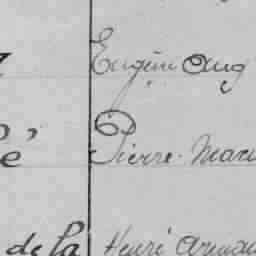 Eugène Aug
é Pierre Mari
de la Henri Arman